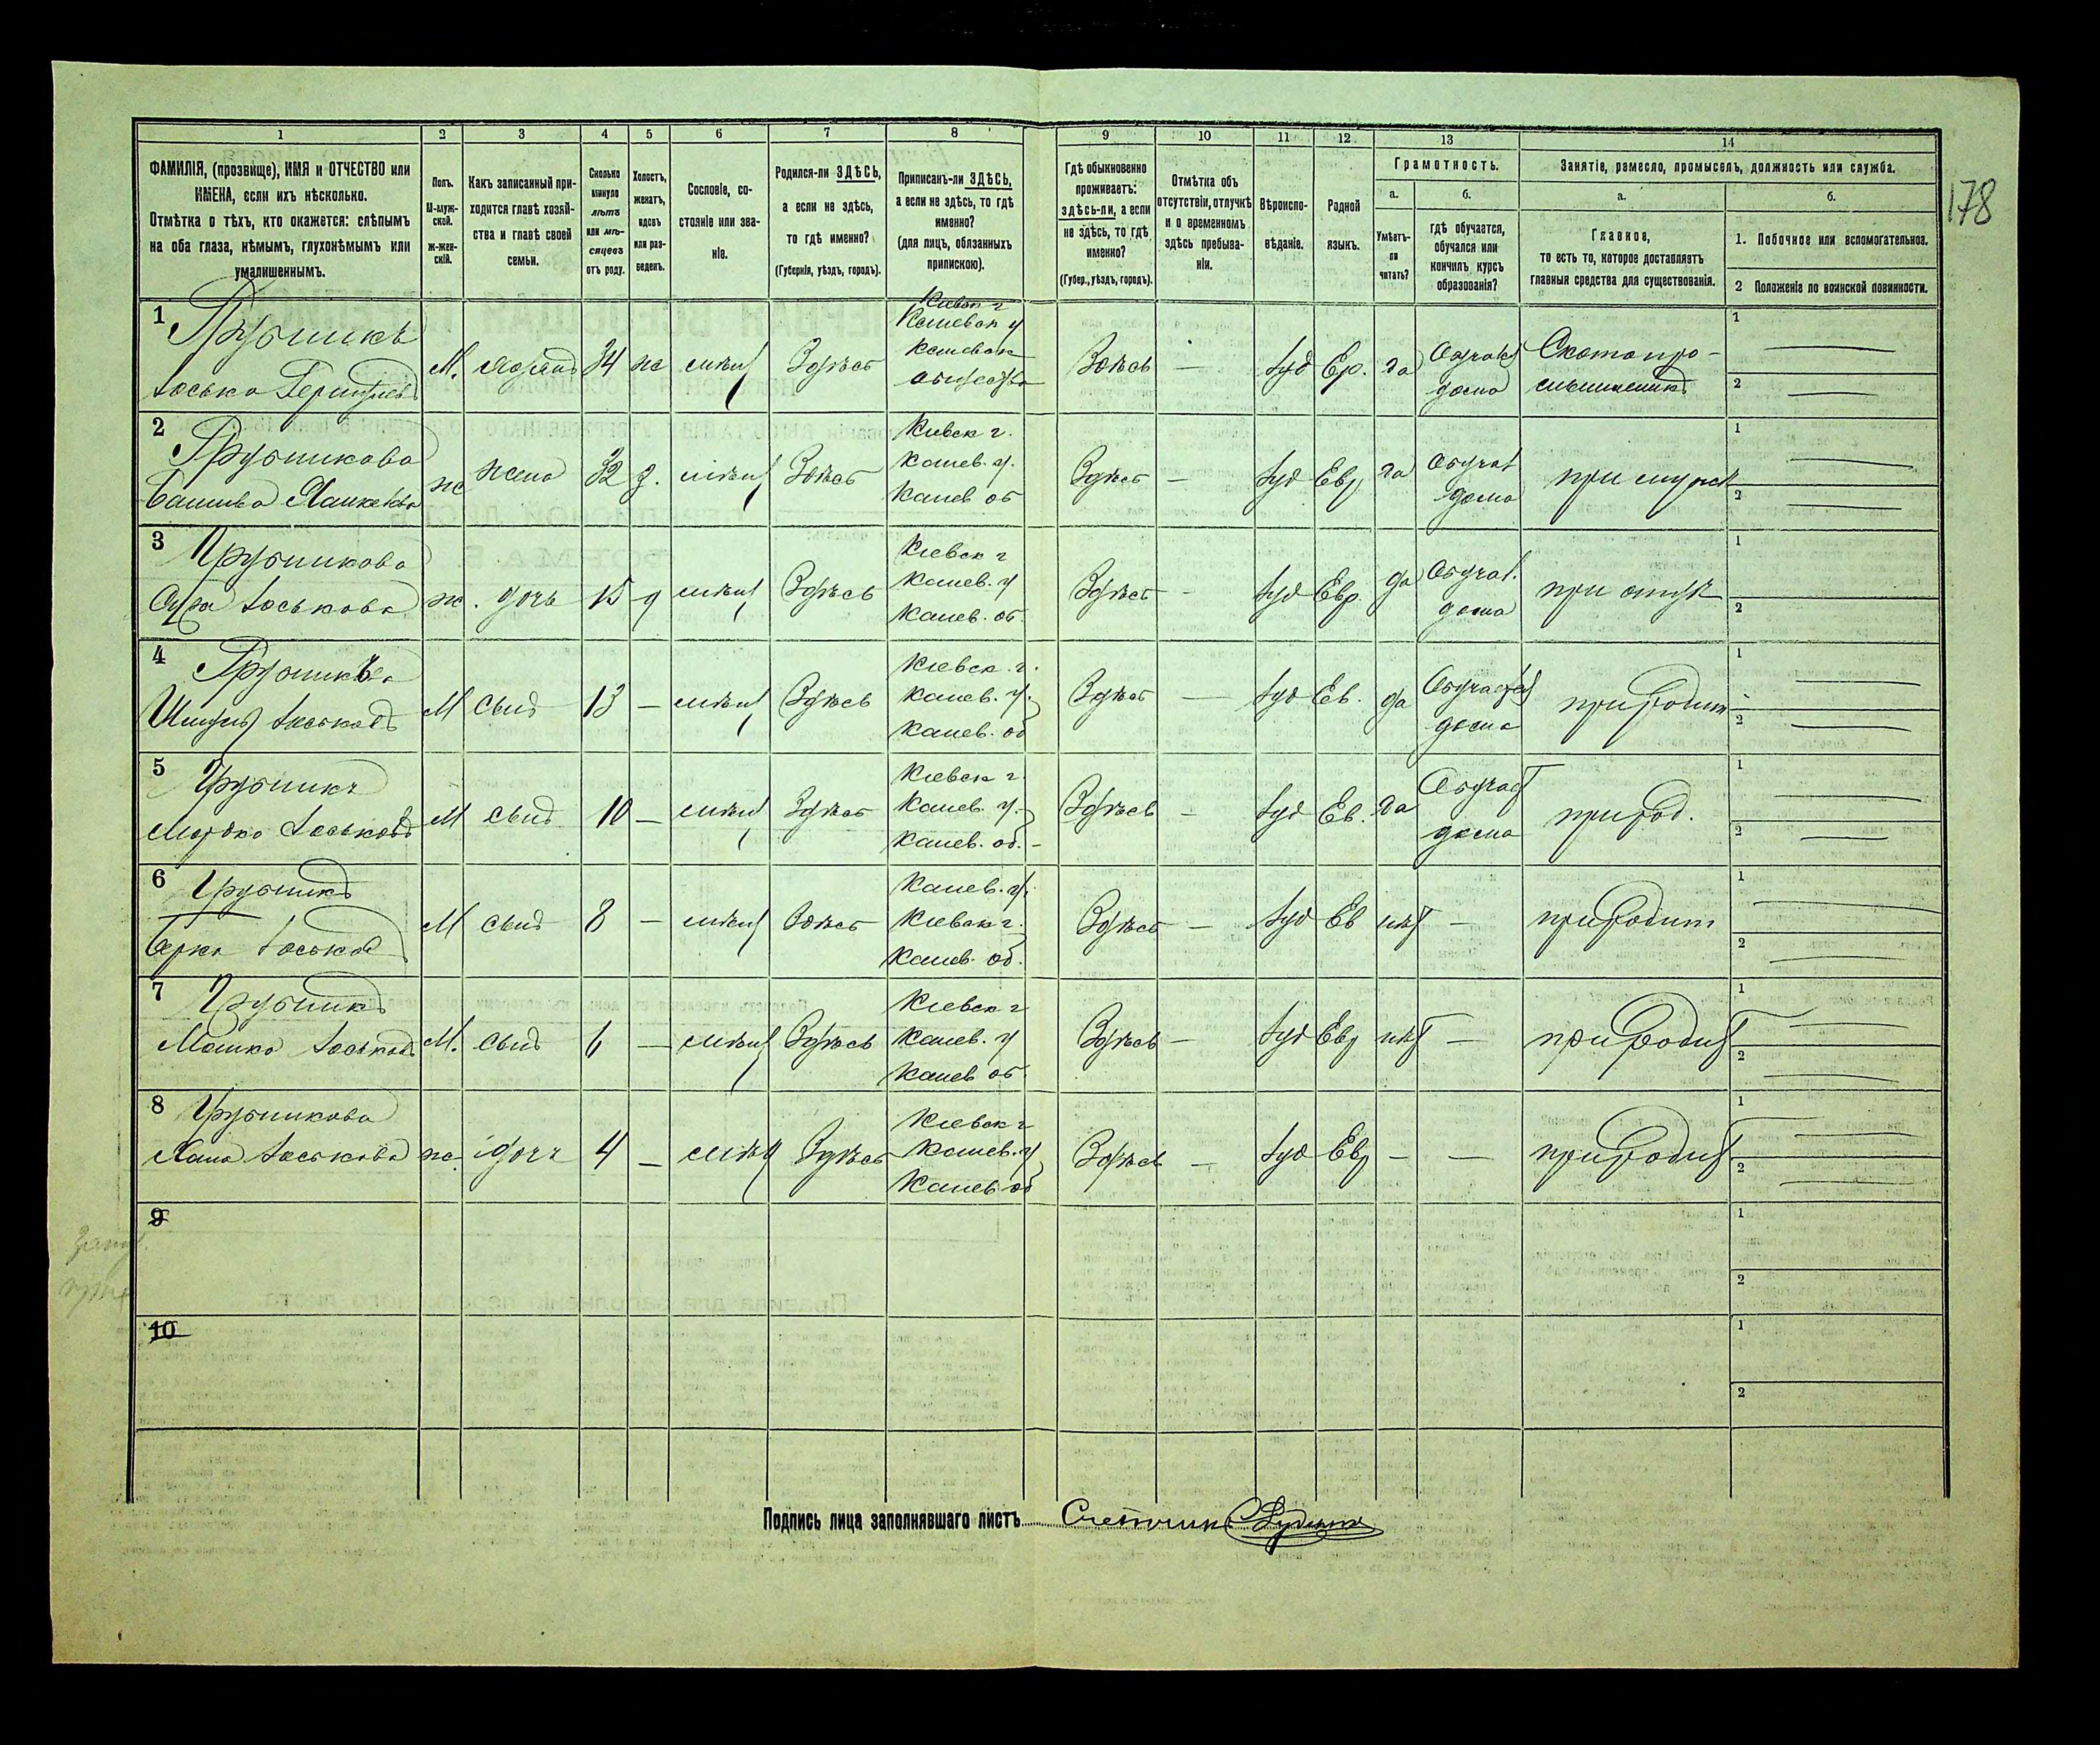 178
1 2 3 4 5 6 7 8 9 10 11 12 13 14
ФАМИЛІЯ, (прозвище), ИМЯ и ОТЧЕСТВО или
ИМЕНА, если ихъ нѣсколько.
Отмѣтка о тѣхъ, кто окажется: слѣпымъ
на оба глаза, нѣмымъ, глухонѣмымъ или
умалишеннымъ.
Полъ.
М-муж-
ской.
Ж-жен-
скій.
Какъ записанный при-
ходится главѣ хозяй-
ства и главѣ своей
семьи.
Сколько
минуло
лѣтъ
или мѣ-
сяцевъ
отъ роду.
Холостъ,
женатъ,
вдовъ
или раз-
веденъ.
Сословіе, со-
стояніе или зва-
ніе.
Родился-ли ЗДѢСЬ,
а если не здѣсь,
то гдѣ именно?
(Губернія, уѣздъ, городъ).
Приписанъ-ли ЗДѢСЬ,
а если не здѣсь, то гдѣ
именно?
(для лицъ, обязанныхъ
припискою).
Гдѣ обыкновенно
проживаетъ:
здѣсь-ли, а если
не здѣсь, то гдѣ
именно?
(Губер., уѣздъ, городъ).
Отмѣтка объ
отсутствіи, отлучкѣ
и о временномъ
здѣсь пребыва-
ніи.
Вѣроиспо-
вѣданіе.
Родной
языкъ.
Грамотность.
а.
Умѣетъ-
ли
читать?
б.
гдѣ обучается,
обучался или
кончилъ курсъ
образованія?
Занятіе, ремесло, промыселъ, должность или служба.
а.
Главное,
то есть то, которое доставляетъ
главныя средства для существованія.
б.
1. Побочное или вспомогательное.
2 Положеніе по воинской повинности.
1 Грубникъ
Іосько
М. 34 ж мѣщ Здѣсь
Кіевск г
Каневск у
Каневск
общества
Здѣсь — Іуд Ев. да
дома
Скотопро-
мышленникъ
1 —
2 —
2 Грубникова
ж жена 32 з. мѣщ Здѣсь
Кіевск г.
Канев. у.
Канев об
Здѣсь — Іуд Евр да
Обучал
дома
при мужѣ
1 —
2 —
3 Грубникова
Сура Іоськова
ж. дочь 15 д мѣщ Здѣсь
Кіевск г
Канев. у
Канев. об.
Здѣсь — Іуд Евр. да
Обучал.
дома
при отцѣ
1
2
4
М сынъ 13 — мѣщ Здѣсь
Кіевск. г.
Канев. у.
Канев. об
Здѣсь — Іуд Ев. да
дома
1 —
2 —
5 Грубникъ
Мордко Іоськовъ
М сынъ 10 — мѣщ Здѣсь
Кіевск г.
Канев. у.
Канев. об.
Здѣсь — Іуд Ев. да
дома
при род.
1 —
2 —
6 Грубникъ
Берко Іоськов
М сынъ 8 — мѣщ Здѣсь
Канев. у.
Кіевск г.
Канев. об.
Здѣсь — Іуд Ев нѣт —
при родит
1 —
2 —
7 Грубникъ
Мошко Іоськовъ
М. сынъ 6 — мѣщ Здѣсь
Кіевск г
Канев. у
Канев об.
Здѣсь — Іуд Евр нѣт —
при родит
1 —
2 —
8 Грубникова
Хана Іоськова
ж. дочь 4 — мѣщ Здѣсь
Кіевск г
Канев. у
Канев об
Здѣсь — Іуд Евр — —
при родит
1 —
2 —
9
1
2
10
1
2
Подпись лица заполнявшаго листъ Счетчик